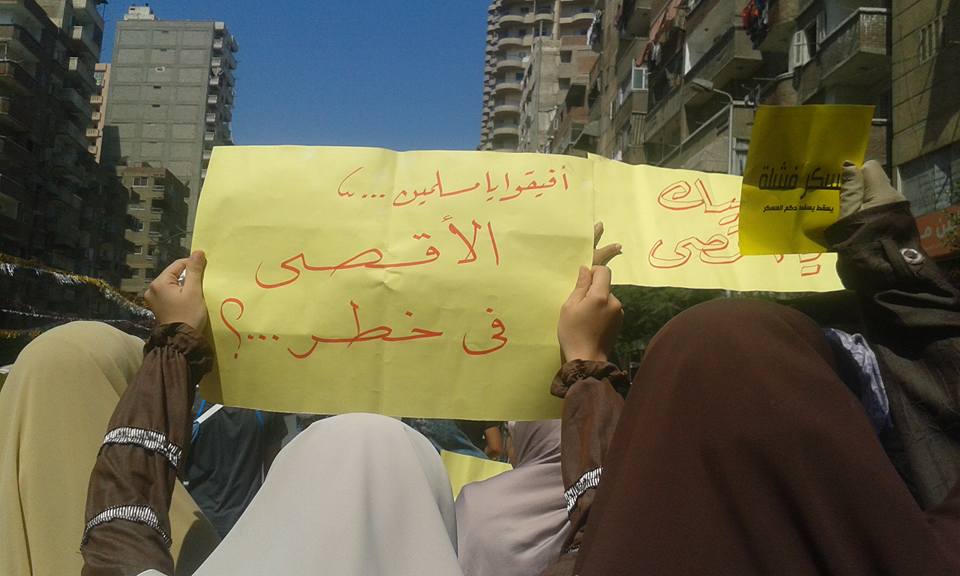 أفيقوا يا مسلمين ...
الأقصى
فى خطر ...؟
فشلة
يسقط يسقط حكم العسكر